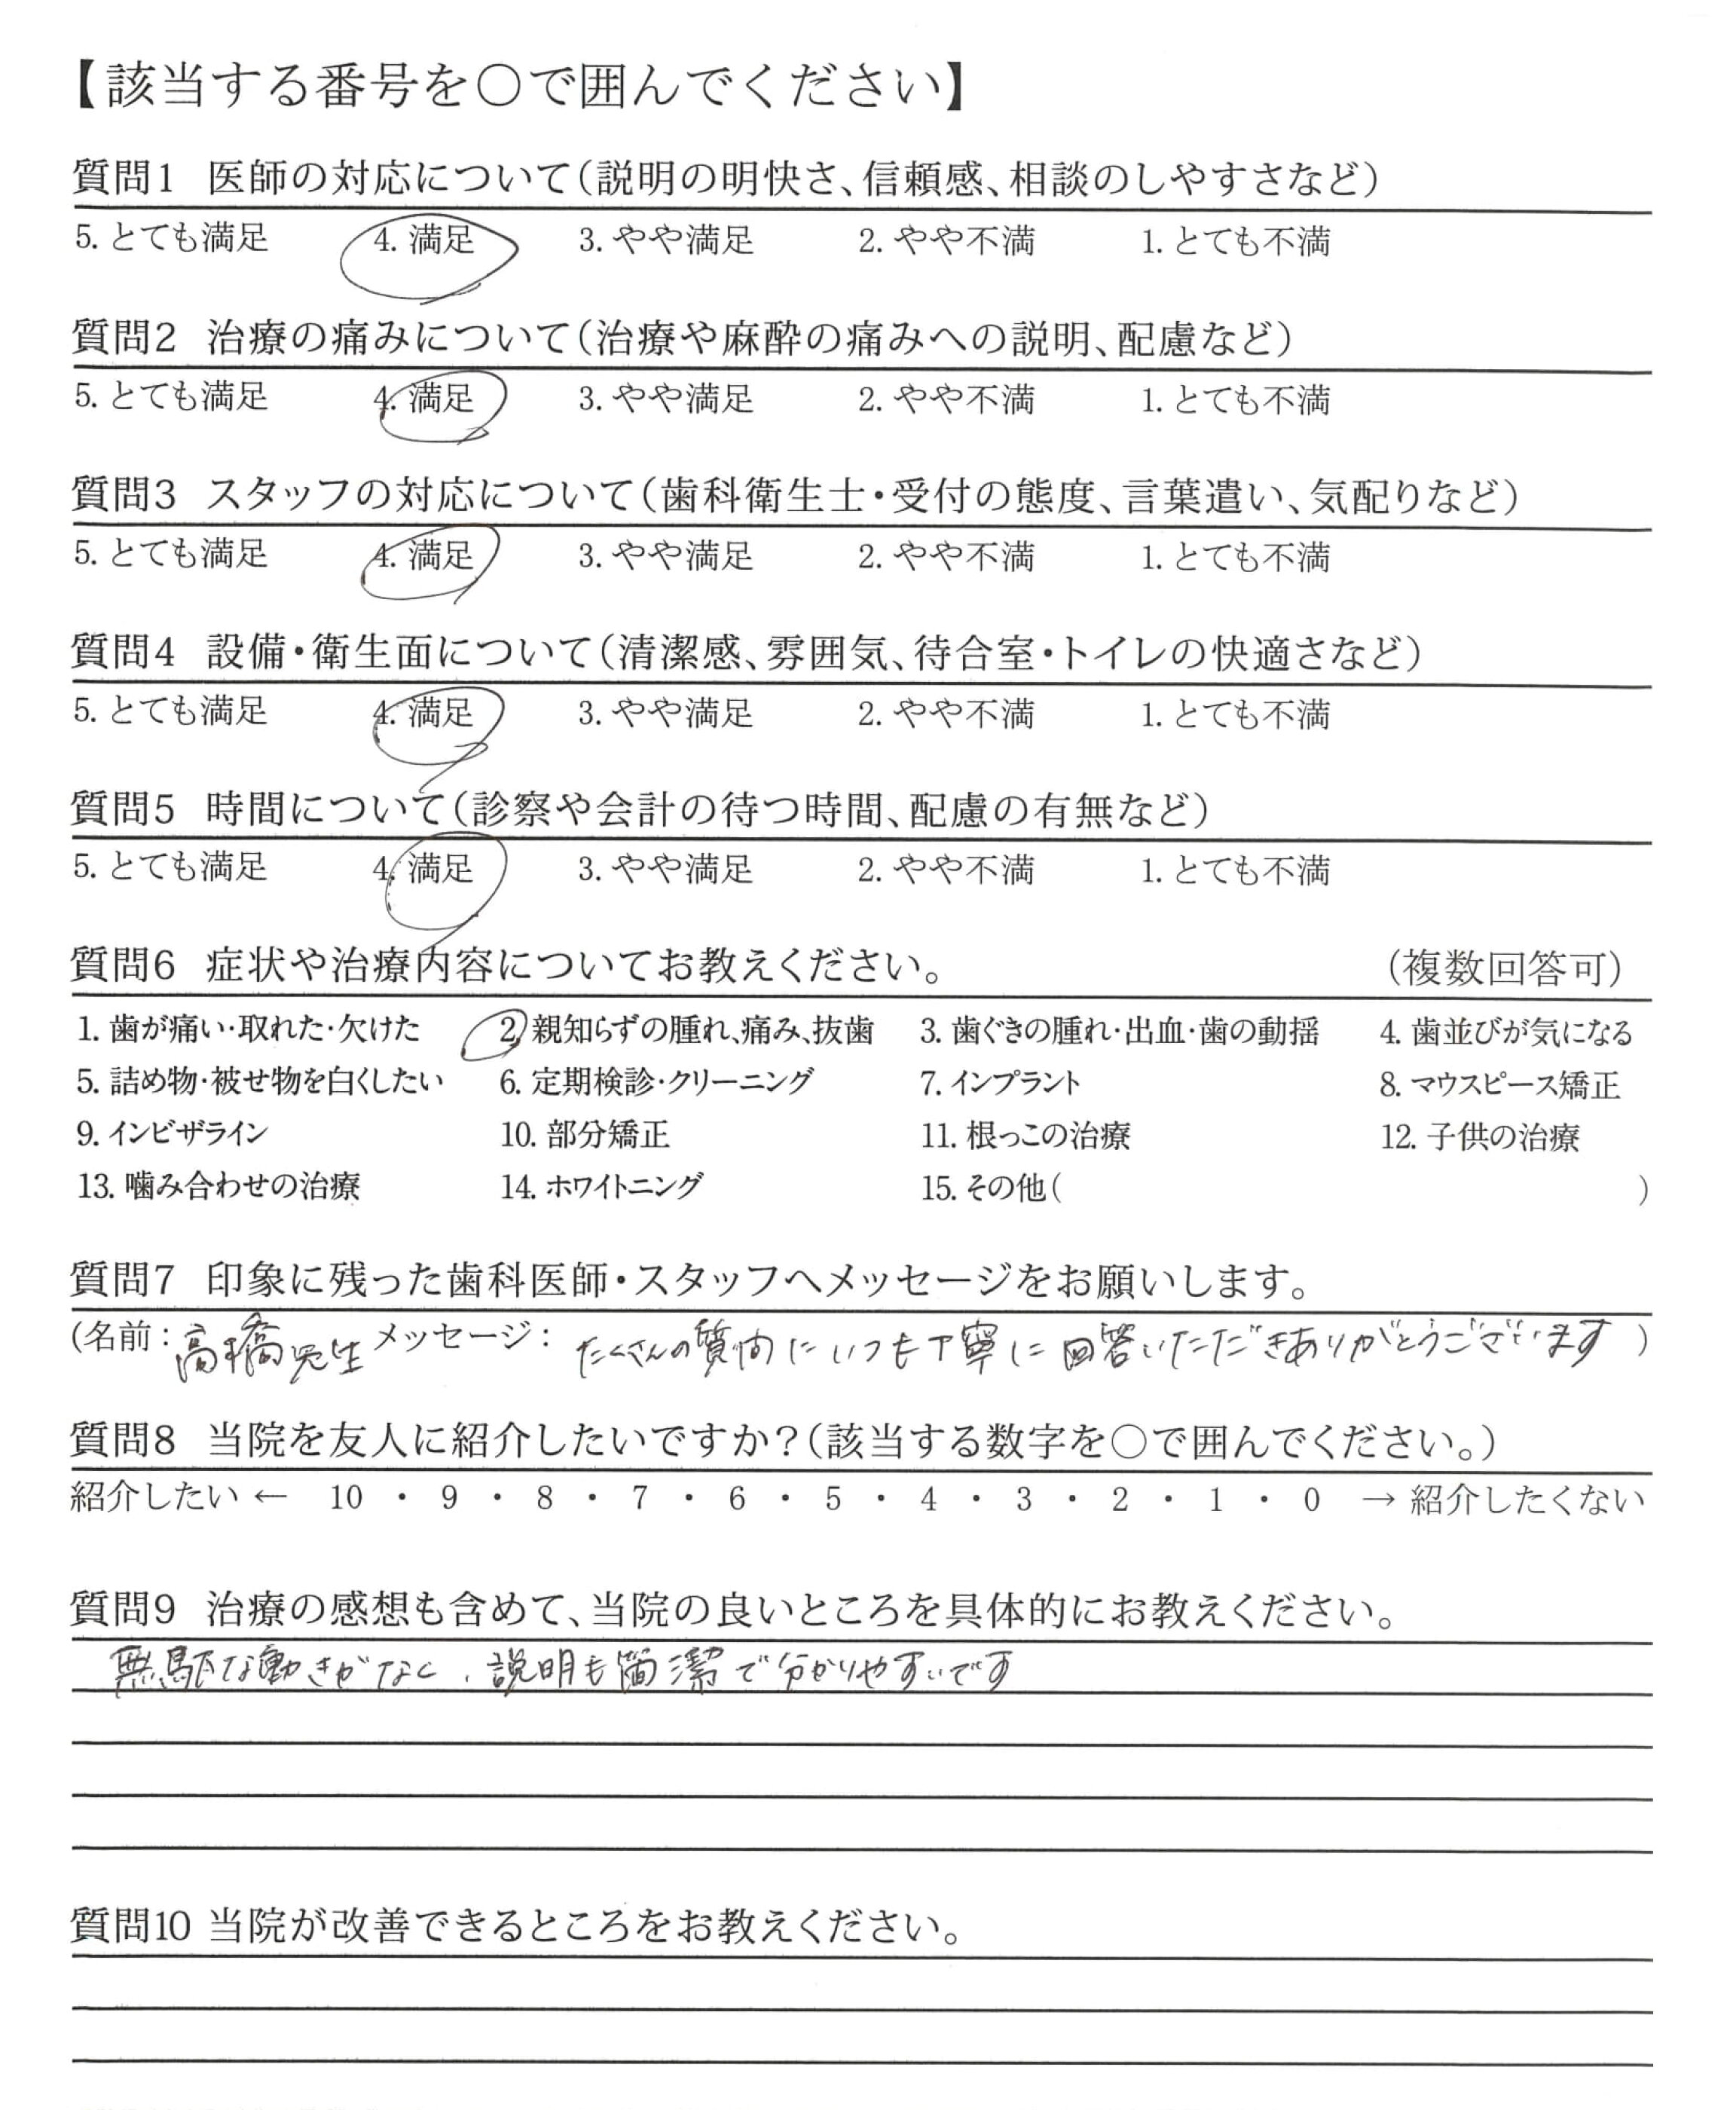 【該当する番号を○で囲んでください】
質問1 医師の対応について(説明の明快さ、信頼感、相談のしやすさなど)
5. とても満足 4. 満足 3. やや満足 2. やや不満 1. とても不満
質問2 治療の痛みについて(治療や麻酔の痛みへの説明、配慮など)
5. とても満足 4. 満足 3. やや満足 2. やや不満 1. とても不満
質問3 スタッフの対応について(歯科衛生士・受付の態度、言葉遣い、気配りなど)
5. とても満足 4. 満足 3. やや満足 2. やや不満 1. とても不満
質問4 設備・衛生面について(清潔感、雰囲気、待合室・トイレの快適さなど)
5. とても満足 4. 満足 3. やや満足 2. やや不満 1. とても不満
質問5 時間について(診察や会計の待つ時間、配慮の有無など)
5. とても満足 4. 満足 3. やや満足 2. やや不満 1. とても不満
質問6 症状や治療内容についてお教えください。 (複数回答可)
1. 歯が痛い・取れた・欠けた 2. 親知らずの腫れ、痛み、抜歯 3. 歯ぐきの腫れ・出血・歯の動揺 4. 歯並びが気になる
5. 詰め物・被せ物を白くしたい 6. 定期検診・クリーニング 7. インプラント 8. マウスピース矯正
9. インビザライン 10. 部分矯正 11. 根っこの治療 12. 子供の治療
13. 噛み合わせの治療 14. ホワイトニング 15. その他( )
質問7 印象に残った歯科医師・スタッフへメッセージをお願いします。
(名前:高橋先生 メッセージ: たくさんの質問にいつも丁寧に回答いただきありがとうございます )
質問8 当院を友人に紹介したいですか?(該当する数字を○で囲んでください。)
紹介したい ← 10 ・ 9 ・ 8 ・ 7 ・ 6 ・ 5 ・ 4 ・ 3 ・ 2 ・ 1 ・ 0 → 紹介したくない
質問9 治療の感想も含めて、当院の良いところを具体的にお教えください。
無駄な動きがなく、説明も簡潔で分かりやすいです
質問10 当院が改善できるところをお教えください。